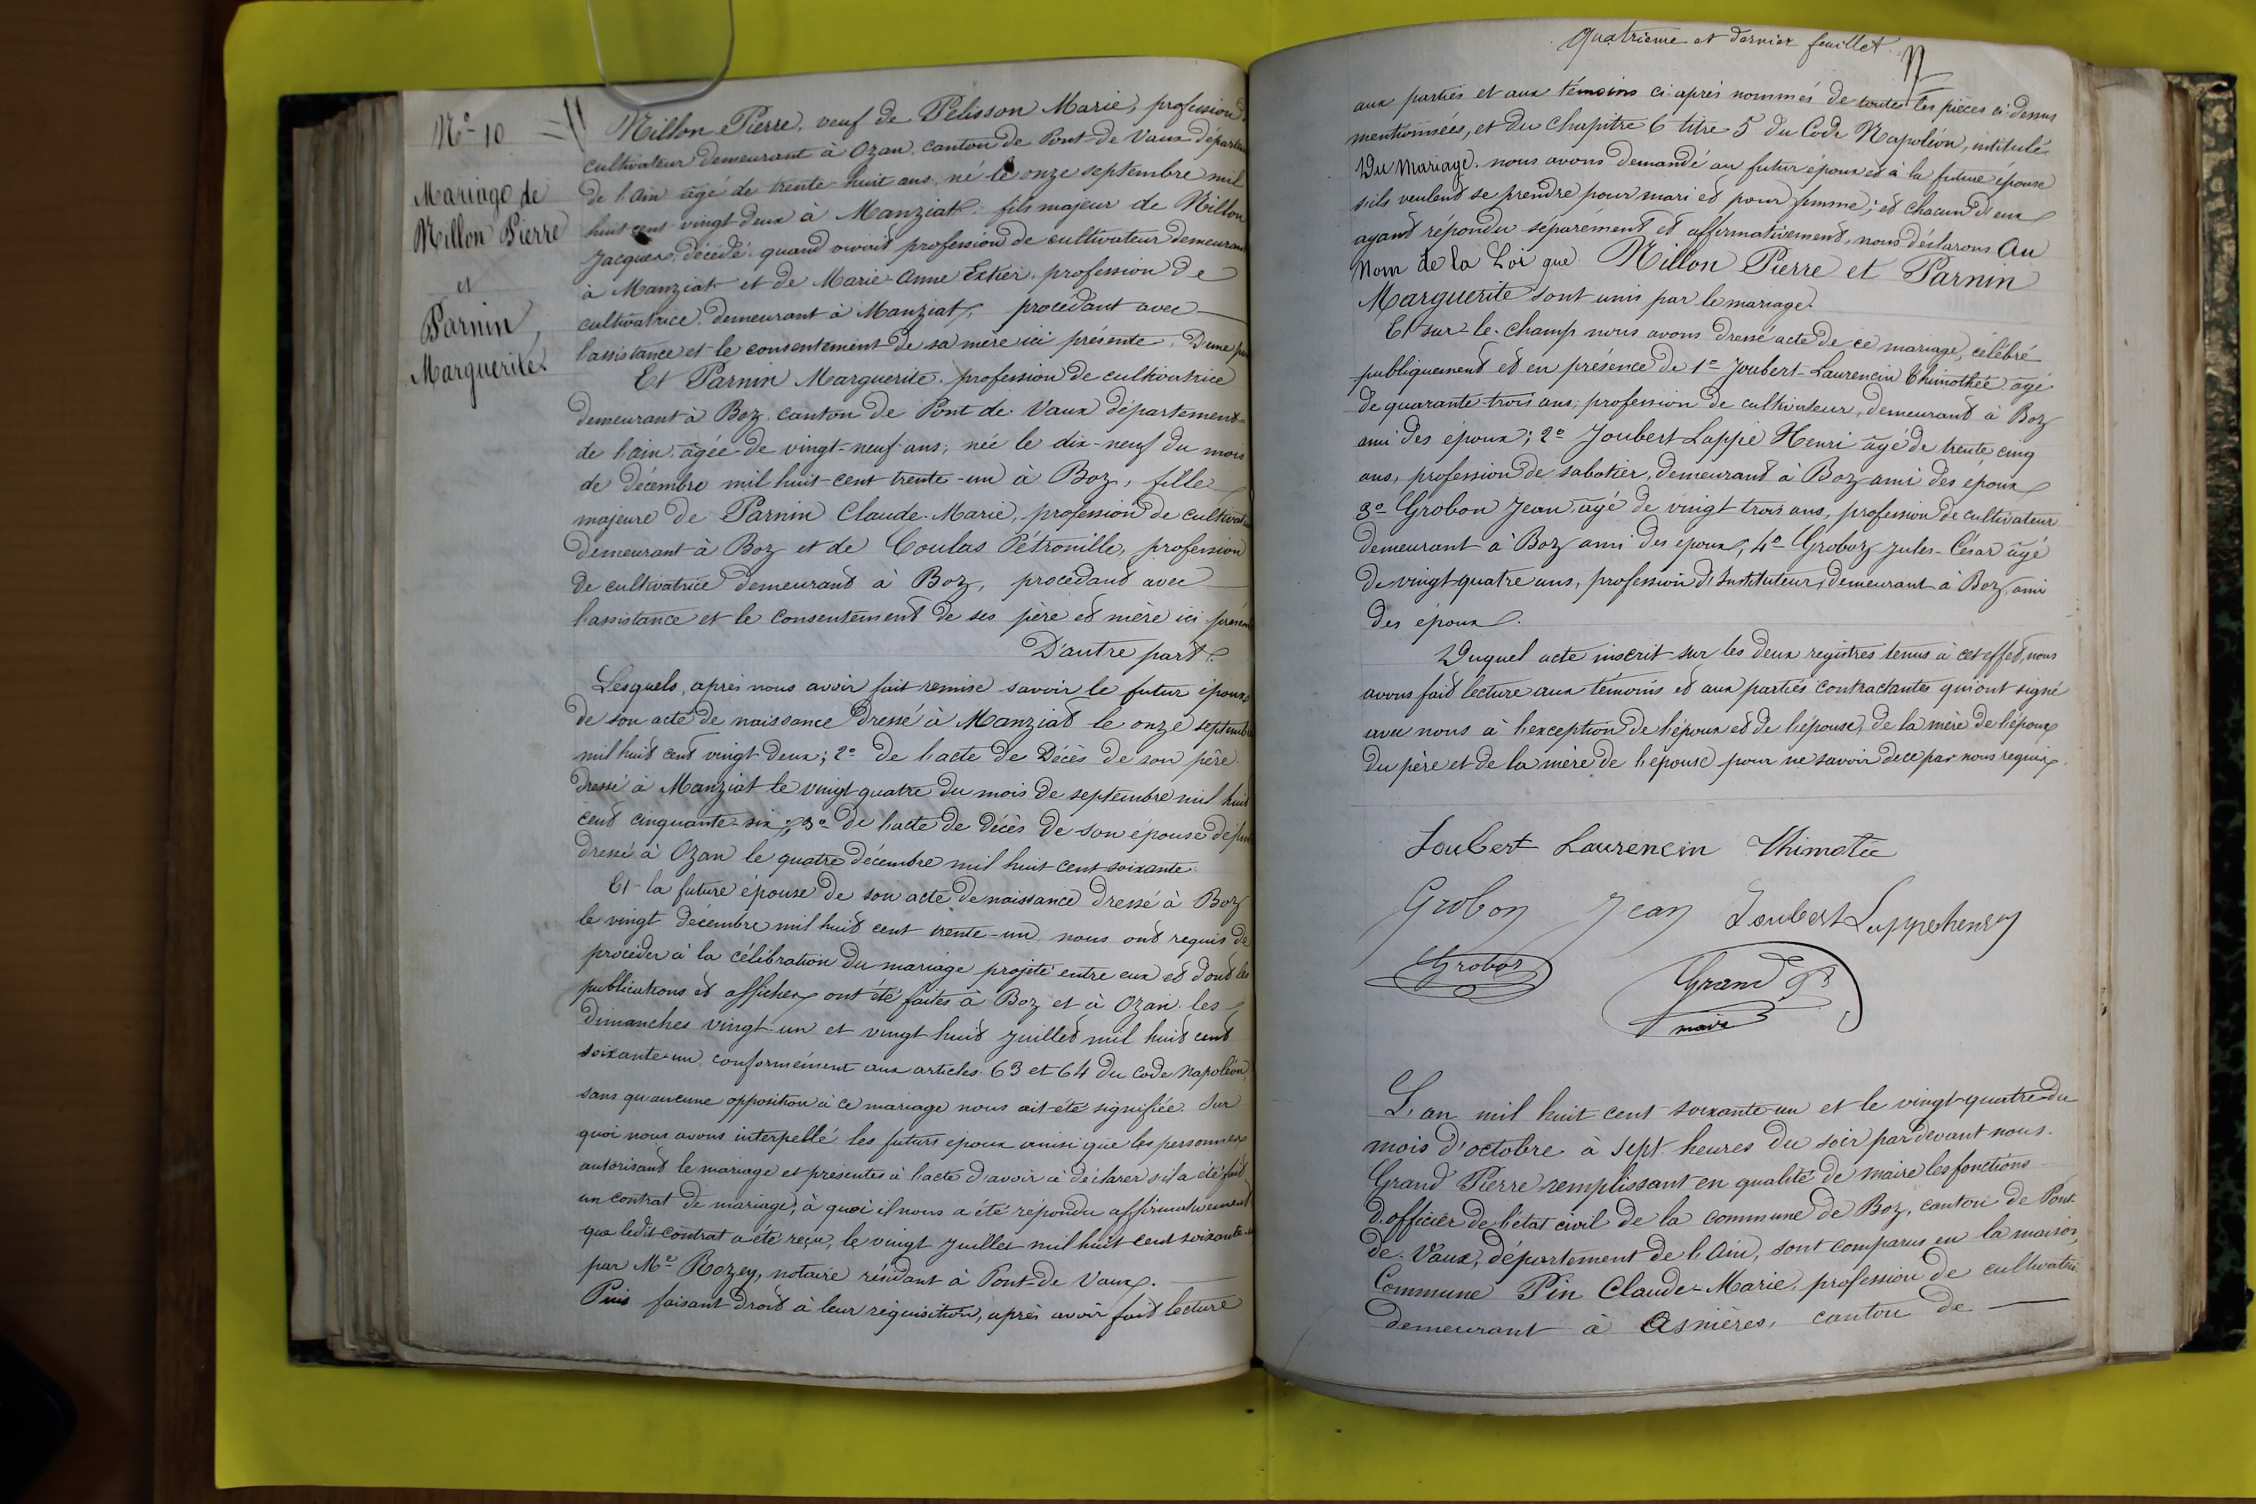 No 10
Mariage de
Millon Pierre
et
Parnin
Marguerite.
Millon Pierre, veuf de Pélisson Marie, profession
cultivateur demeurant à Ozan, canton de Pont-de-Vaux départem
de l'ain âgé de trente-huit ans, né le onze septembre mil
huit cent vingt deux à Manziat, fils majeur de Millon
Jacques, décédé, quand vivait profession de cultivateur demeurant
à Manziat et de Marie-Anne profession de
cultivatrice demeurant à Manziat, procédant avec
l'assistance et le consentement de sa mère ici présente. D'une
Et Parnin Marguerite, profession de cultivatrice
demeurant à Boz, canton de Pont de Vaux département
de l'ain, âgée de vingt-neuf ans, née le dix-neuf du mois
de décembre mil huit-cent trente-un à Boz, fille
majeure de Parnin Claude-Marie, profession de cultivat
demeurant à Boz et de Coulas Pétronille, profession
de cultivatrice demeurant à Boz, procédant avec
l'assistance et le consentement de ses père et mère ici
D'autre part.
Lesquels, après nous avoir fait remise savoir le futur époux
de son acte de naissance dressé à Manziat le onze septembre
mil huit cent vingt deux; 2o de l'acte de Décès de son père
dressé à Manziat le vingt quatre du mois de septembre mil huit
cent cinquante-six; 3o de l'acte de décès de son épouse
dressé à Ozan le quatre décembre mil huit cent soixante
Et la future épouse de son acte de naissance dressé à Boz
le vingt décembre mil huit cent trente-un nous ont requis de
procéder à la célébration du mariage projeté entre eux et dont les
publications et affiches ont été faites à Boz et à Ozan les
dimanches vingt-un et vingt huit juillet mil huit cent
soixante-un conformément aux articles 63 et 64 du code Napoléon
sans qu'aucune opposition à ce mariage nous ait été signifiée. Sur
quoi nous avons interpellé les futurs époux ainsi que les personnes
autorisant le mariage et présentes à l'acte d'avoir à déclarer s'il a été fait
un contrat de mariage, à quoi il nous a été répondu affirmativement
que ledit contrat a été reçu, le vingt juillet mil huit cent soixante-
par Me Rozey, notaire résidant à Pont-de Vaux.
Puis faisant droit à leur réquisition, après avoir fait lecture
Quatrième et dernier feuillet.
aux parties et aux témoins ci-après nommés de toutes les pièces ci-dessus
mentionnées, et du chapitre 6 titre 5 du Code Napoléon, intitulé
Du Mariage, nous avons demandé au futur époux et à la future épouse
s'ils veulent se prendre pour mari et pour femme; et chacun d'eux
ayant répondu séparément et affirmativement, nous déclarons Au
Nom de la Loi que Millon Pierre et Parnin
Marguerite sont unis par le mariage.
Et sur-le-champ nous avons dressé acte de ce mariage, célébré
publiquement et en présence de 1o Joubert-Laurencin Thimothée âgé
de quarante-trois ans, profession de cultivateur, demeurant à Boz
ami des époux; 2o Joubert Lappé Henri âgé de trente cinq
ans, profession de sabotier, demeurant à Boz ami des époux
3o Grobon Jean âgé de vingt trois ans, profession de cultivateur
demeurant à Boz ami des époux; 4o Groboz Jules-César âgé
de vingt quatre ans, profession d'Instituteur, demeurant à Boz, ami
des époux.
Duquel acte inscrit sur les deux registres tenus à cet effet, nous
avons fait lecture aux témoins et aux parties contractantes qui ont signé
avec nous à l'exception de l'époux et de l'épouse, de la mère de l'époux
du père et de la mère de l'épouse pour ne savoir de ce par nous requis.
Joubert Laurencin Thimotée
Grobon Jean Joubert Lappehenry
Groboz
Grand Pre
maire
L'an mil huit cent soixante un et le vingt-quatre du
mois d'octobre à sept heures du soir pardevant nous.
Grand Pierre remplissant en qualité de maire les fonctions
d'officier de l'état civil de la commune de Boz, canton de Pont
de Vaux, département de l'Ain, sont comparus en la maison
Commune Pin Claude-Marie, profession de
demeurant à Asnières, canton de